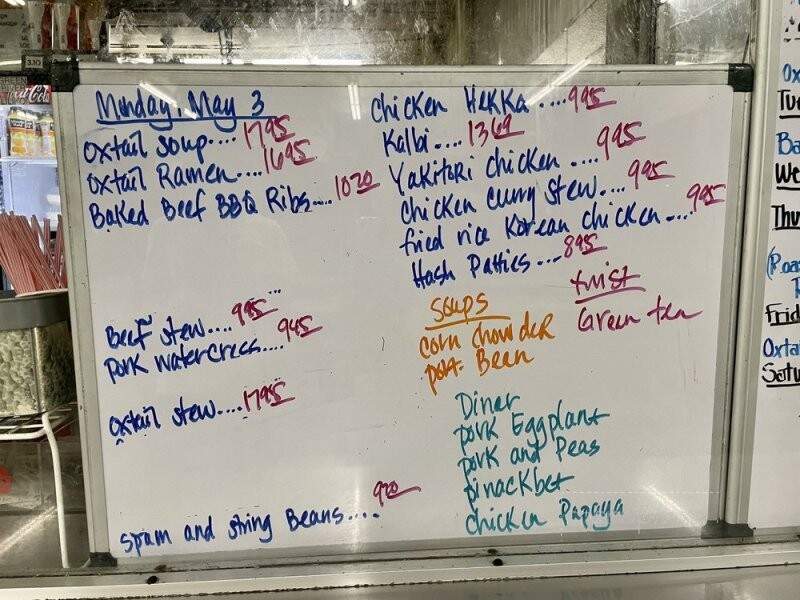 Munday, May 3
oxtail soup.... 17.95
oxtail Ramen.... 16.95
Baked Beef BBQ Ribs.... 10.20
Beef stew.... 9.95
pork watercress.... 9.45
oxtail stew.... 17.95
spam and string Beans.... 9.20
Chicken Hekka .... 9.95
Kalbi.... 13.69
Yakitori chicken .... 9.95
chicken curry stew.... 9.95
fried rice Korean chicken.... 9.95
Hash Patties.... 8.95
Soups
corn chowder
port. Bean
twist
Green tea
Diner
pork Eggplant
pork and Peas
pinackbet
chicken Papaya
Coca-Cola
310
Tu
Ba
We
Thu
Frid
Oxta
Satu